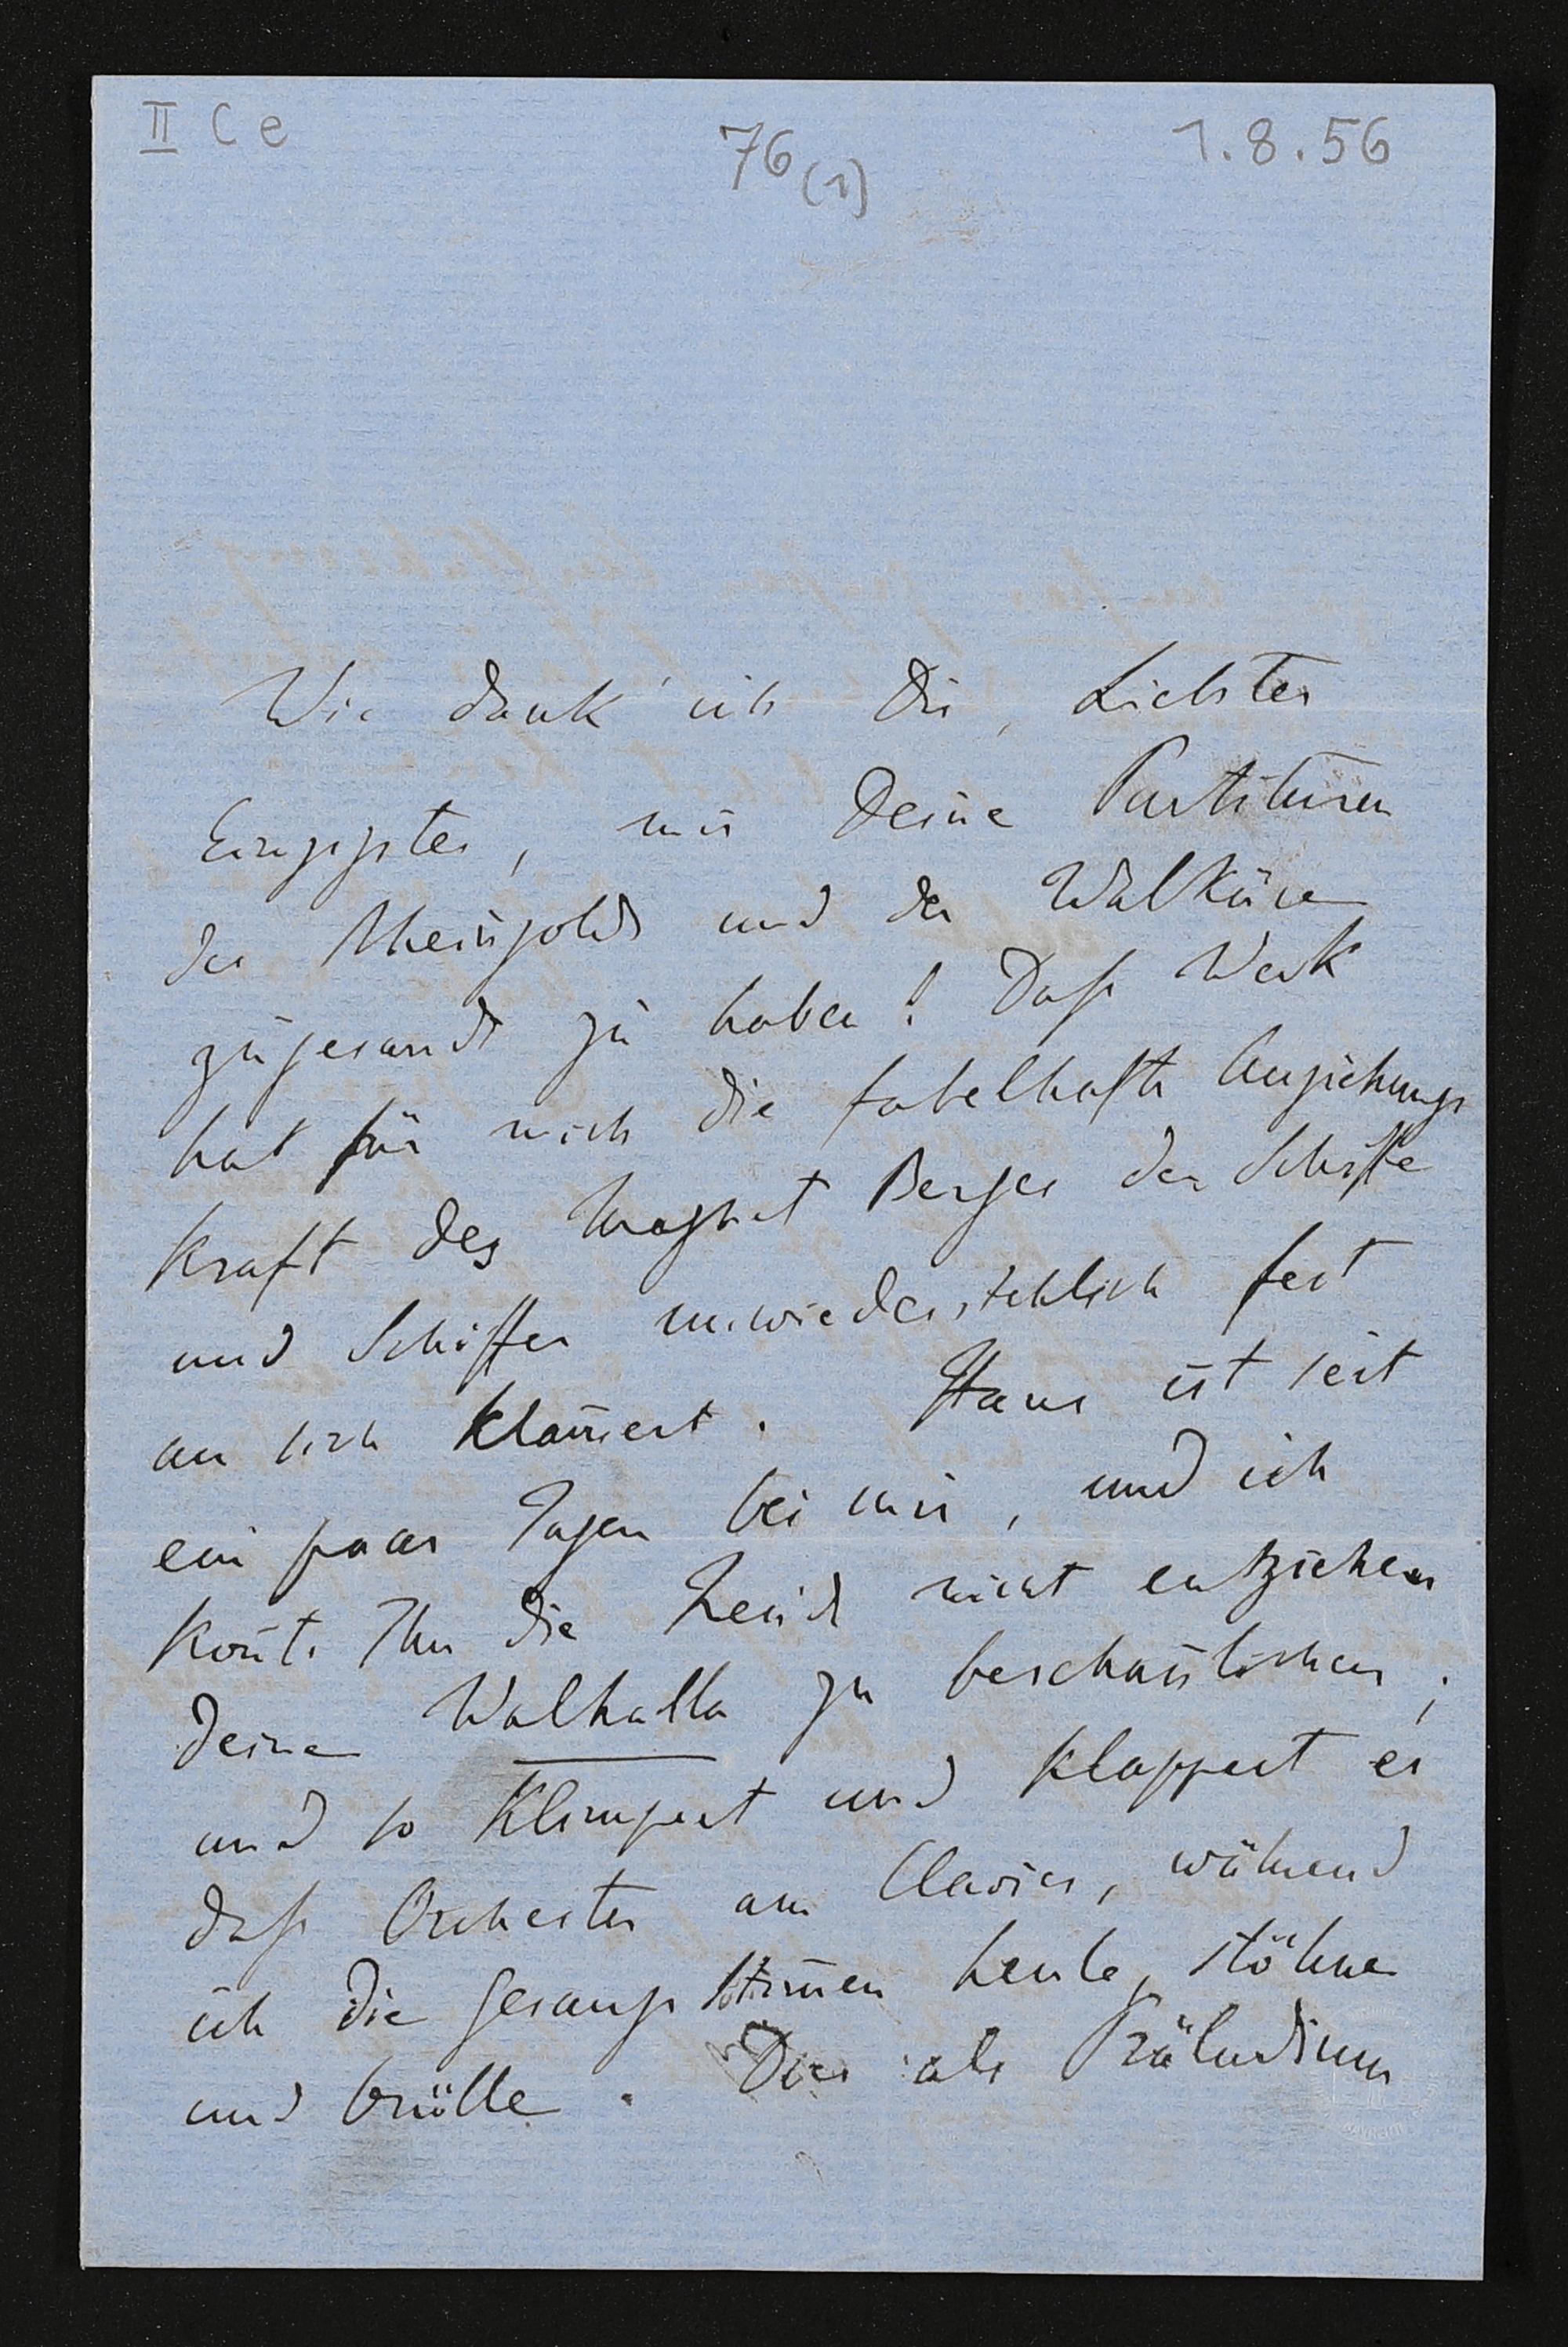 II C e
76 (1)
1.8.56
Wie dank' ich Dir, Liebster
Einzigster, mir Deine Partituren
des Rheingolds und der Walküre
zugesandt zu haben! Daß Werk
hat für mich die fabelhafte Anziehungs
Kraft des Magnet Berges der Schiffe
und Schiffer unwiederstehlich fest
an sich klam̄ert. Hans ist seit
ein paar Tagen bei mir, und ich
kon̄te Ihm die Freude nicht entziehen
Deine Walhalla zu beschaulichen;
und so klimpert und klappert er
daß Orchester am Clavier, während
ich die Gesangs Stim̄en heule, stöhne
und brülle. Dies als Präludium